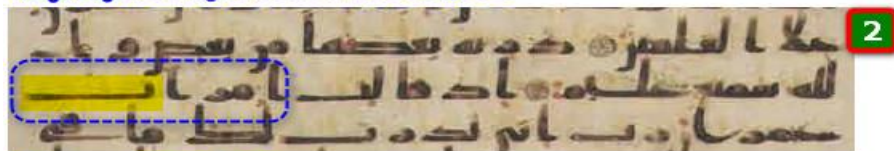 على العلمين ذرية بعضها من بعض وا
لله سميع عليم اذ قالت امرات
عمرن رب اني نذرت لك ما في
2